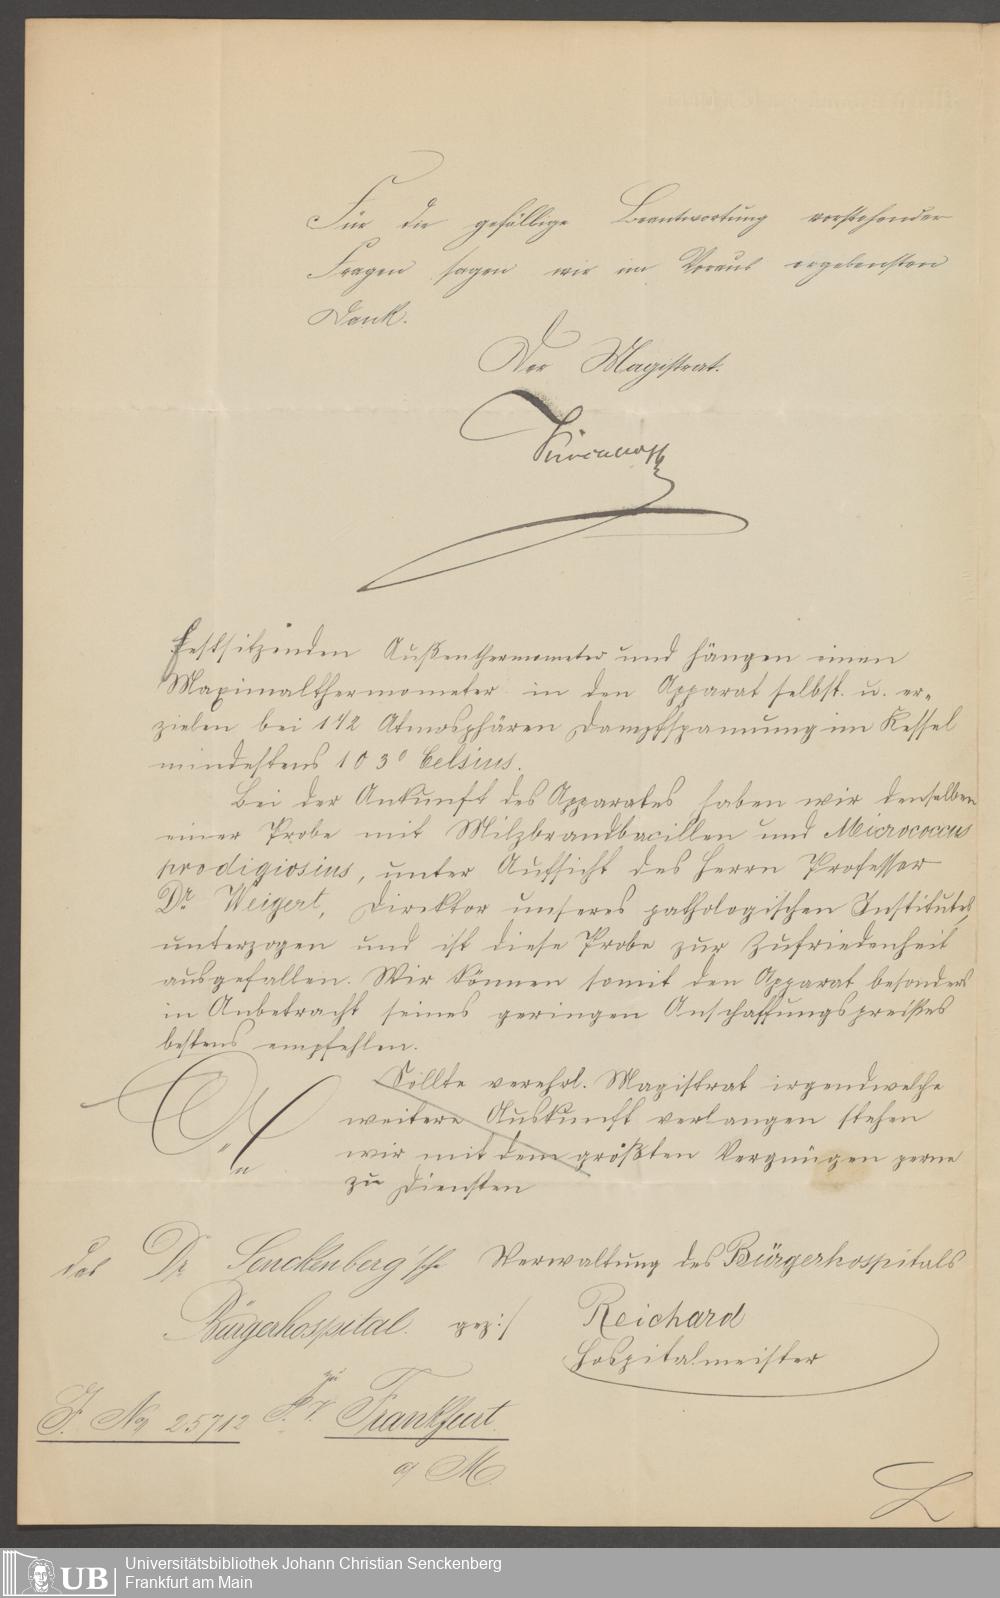 Für die gefällige Beantwortung vorstehender
Fragen sagen wir im Voraus ergebensten
Dank.
Der Magistrat.
festsitzenden Außenthermometer und hängen einen
Maximalthermometer in den Apparat selbst u. er-
zielen bei 1 1/2 Atmosphären Dampfspannung im Kessel
mindestens 103° Celsius.
Bei der Ankunft des Apparates haben wir denselben
einer Probe mit Milzbrandbacillen und Micrococcus
prodigiosius, unter Aufsicht des Herrn Professor
Dr Weigert, Direktor unseres pathologischen Institutes,
unterzogen und ist diese Probe zur Zufriedenheit
ausgefallen. Wir können somit den Apparat besonders
in Anbetracht seines geringen Anschaffungspreißes
bestens empfehlen.
Sollte verehrl. Magistrat irgendwelche
weitere Auskunft verlangen stehen
wir mit dem größten Vergnügen gerne
zu Diensten
An
das Dr Senckenberg'sche Verwaltung des Bürgerhospitals
Bürgerhospital. gez:/ Reichard
Hospitalmeister
zu
J. No 25712 Frankfurt
a/ M.
Universitätsbibliothek Johann Christian Senckenberg
Frankfurt am Main
UB